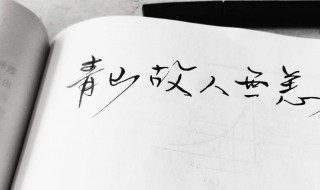 青山故人无恙